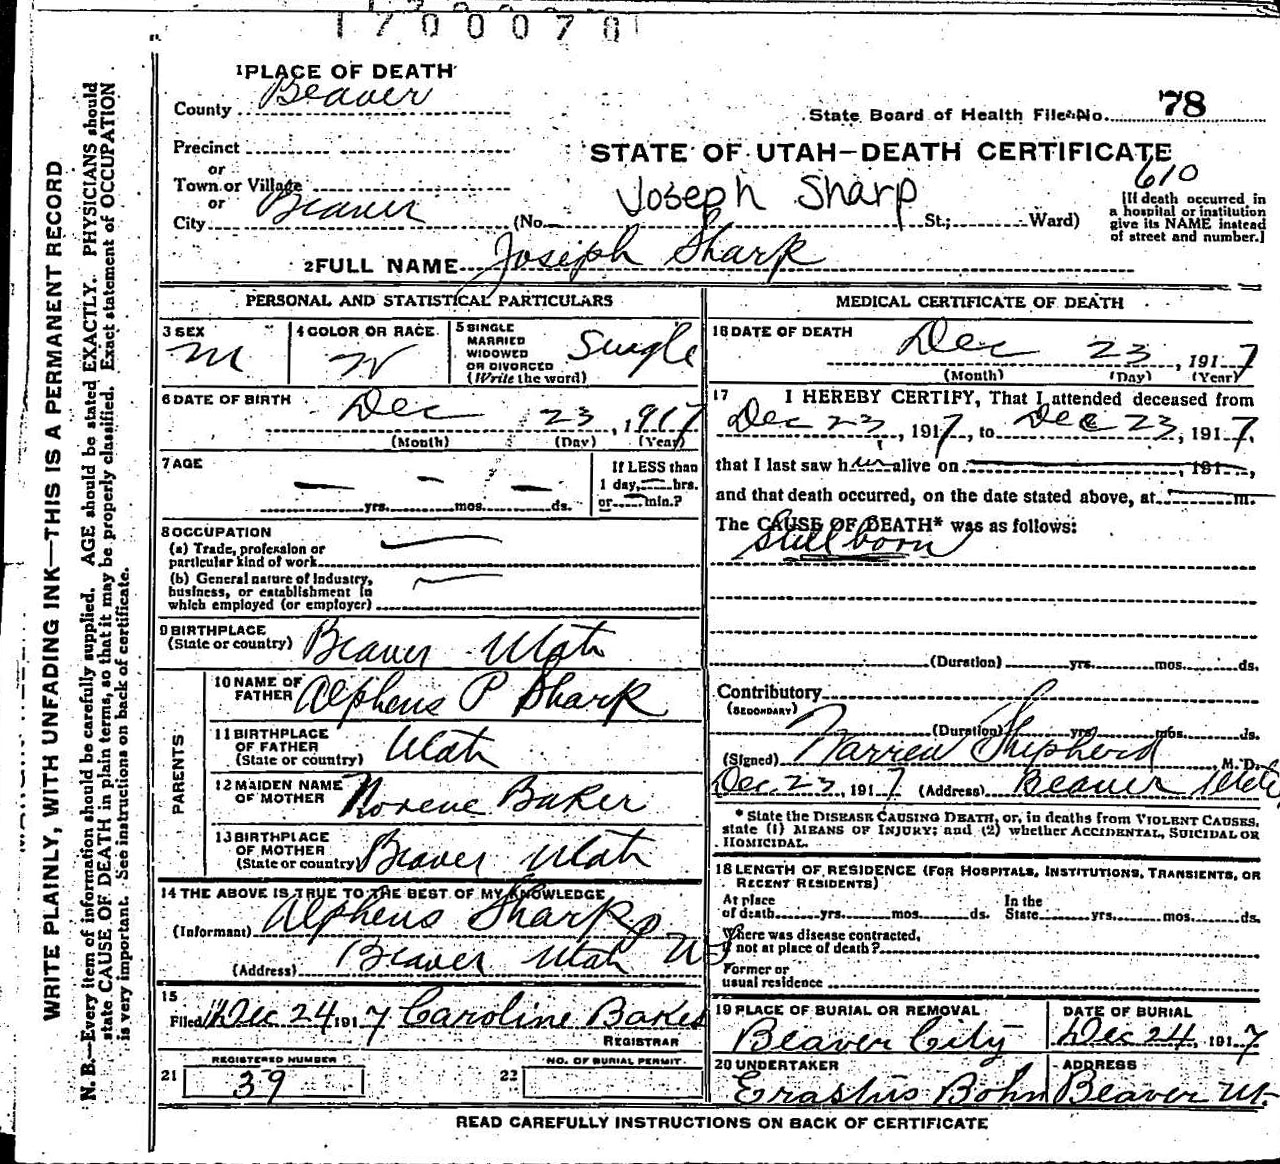 1700078
1 PLACE OF DEATH
County Beaver
State Board of Health File No. 78
Precinct
STATE OF UTAH—DEATH CERTIFICATE
or
Town or Village
610
or
Joseph Sharp
City Beaver (No. St.; Ward)
[If death occurred in
a hospital or institution
give its NAME instead
of street and number.]
2 FULL NAME Joseph Sharp
PERSONAL AND STATISTICAL PARTICULARS
3 SEX
M
4 COLOR OR RACE
W
5 SINGLE
MARRIED
WIDOWED
OR DIVORCED
(Write the word)
Single
6 DATE OF BIRTH
Dec 23, 1917
(Month) (Day) (Year)
7 AGE
— — —
yrs. mos. ds.
If LESS than
1 day, — hrs.
or — min.?
8 OCCUPATION
(a) Trade, profession or
particular kind of work
(b) General nature of Industry,
business, or establishment in
which employed (or employer)
9 BIRTHPLACE
(State or country) Beaver Utah
PARENTS
10 NAME OF
FATHER Alpheus P Sharp
11 BIRTHPLACE
OF FATHER
(State or country) Utah
12 MAIDEN NAME
OF MOTHER Norene Baker
13 BIRTHPLACE
OF MOTHER
(State or country) Beaver Utah
14 THE ABOVE IS TRUE TO THE BEST OF MY KNOWLEDGE
(Informant) Alpheus Sharp
(Address) Beaver Utah
15
Filed Dec 24 1917 Caroline Baker
REGISTRAR
REGISTERED NUMBER
21 39
NO. OF BURIAL PERMIT
22
MEDICAL CERTIFICATE OF DEATH
16 DATE OF DEATH
Dec 23, 1917
(Month) (Day) (Year)
17 I HEREBY CERTIFY, That I attended deceased from
Dec 23, 1917, to Dec 23, 1917,
that I last saw him alive on , 191 ,
and that death occurred, on the date stated above, at m.
The CAUSE OF DEATH* was as follows:
Still born
(Duration) yrs. mos. ds.
Contributory
(SECONDARY)
(Duration) yrs. mos. ds.
(Signed) Warren Shepherd M. D.
Dec. 23, 1917 (Address) Beaver Utah
* State the DISEASE CAUSING DEATH, or, in deaths from VIOLENT CAUSES,
state (1) MEANS OF INJURY; and (2) whether ACCIDENTAL, SUICIDAL OR
HOMICIDAL.
18 LENGTH OF RESIDENCE (FOR HOSPITALS, INSTITUTIONS, TRANSIENTS, OR
RECENT RESIDENTS)
At place
of death yrs. mos. ds.
In the
State yrs. mos. ds.
Where was disease contracted,
if not at place of death?
Former or
usual residence
19 PLACE OF BURIAL OR REMOVAL
Beaver City
DATE OF BURIAL
Dec 24, 1917
20 UNDERTAKER
Erastus Bohn
ADDRESS
Beaver Ut.
READ CAREFULLY INSTRUCTIONS ON BACK OF CERTIFICATE
WRITE PLAINLY, WITH UNFADING INK—THIS IS A PERMANENT RECORD
N. B.—Every item of information should be carefully supplied. AGE should be stated EXACTLY. PHYSICIANS should
state CAUSE OF DEATH in plain terms, so that it may be properly classified. Exact statement of OCCUPATION
is very important. See instructions on back of certificate.